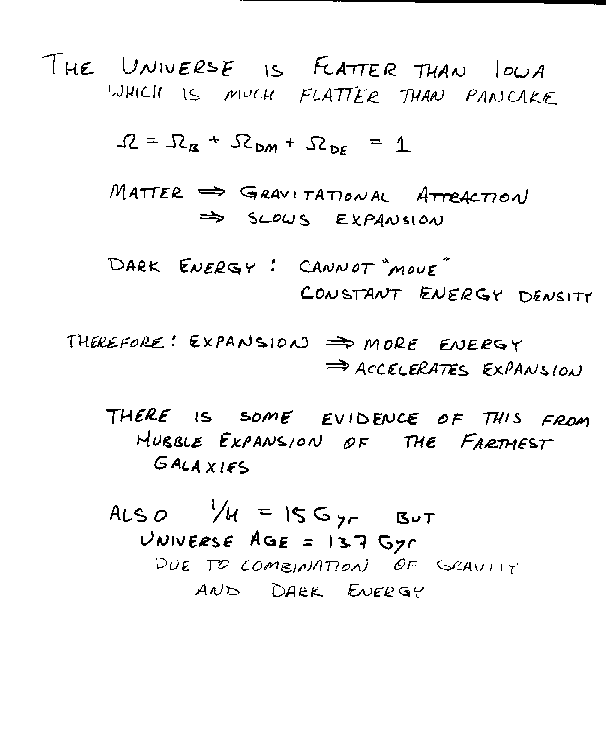 THE UNIVERSE IS FLATTER THAN IOWA
WHICH IS MUCH FLATTER THAN PANCAKE
Ω = Ω_B + Ω_DM + Ω_DE = 1
MATTER ⇒ GRAVITATIONAL ATTRACTION
⇒ SLOWS EXPANSION
DARK ENERGY: CANNOT "MOVE"
CONSTANT ENERGY DENSITY
THEREFORE: EXPANSION ⇒ MORE ENERGY
⇒ ACCELERATES EXPANSION
THERE IS SOME EVIDENCE OF THIS FROM
HUBBLE EXPANSION OF THE FARTHEST
GALAXIES
ALSO 1/H = 15 Gyr BUT
UNIVERSE AGE = 13.7 Gyr
DUE TO COMBINATION OF GRAVITY
AND DARK ENERGY